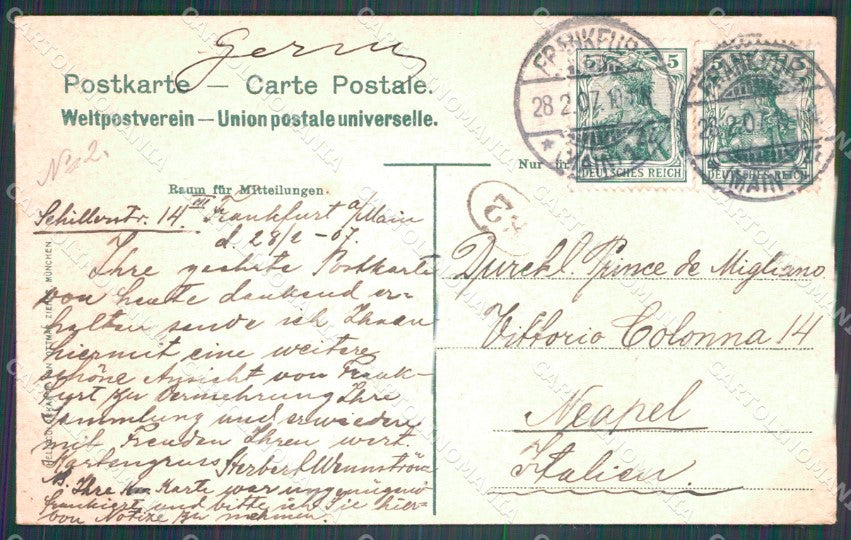 Germ
Postkarte — Carte Postale.
Weltpostverein — Union postale universelle.
No 2.
Raum für Mitteilungen.
Schillerstr. 14 III Frankfurt a/Main
d. 28/2 - 07.
Ihre geehrte Postkarte
von heute dankend er-
halten sende ich Ihnen
hiermit eine weitere
schöne Ansicht von Frank-
furt zur Vermehrung Ihre
Sammlung und erwiedere
mit Freuden Ihren wert.
Kartengruss Herbert Wennström
NS. Ihre Karte war ungenügend
frankiert und bitte ich Sie hier-
von Notize zu nehmen.
MÜNCHEN
FRANKFURT
28.2.07.
* (MAIN) 1
5
DEUTSCHES REICH
FRANKFURT
28.2.07
MAIN
DEUTSCHES REICH
Nur für
Durchl. Prince de Migliano
Vittorio Colonna 14
Neapel
Italien.
CARTOLINOMANIA